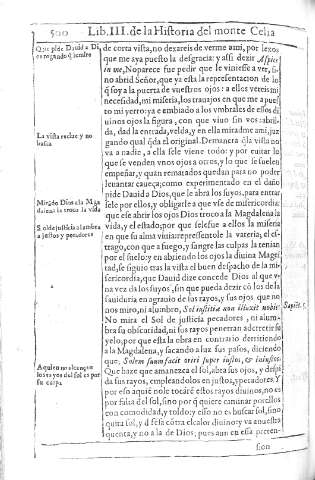 500 Lib. III. de la Historia del monte Celia
Que pide Dauid a Di
os rogando q̃ le mire
La vista esclaue y no
basta
Mirãdo Dios a la Mag
dalena la troco la vida
Sol de justicia alumbra
a justos y pecadores
A quien no alcançan
los rayos del sol es por
su culpa
Sapiēt. 5.
de corta vista, no dexareis de verme ami, por lexos
que me aya puesto la desgracia: y assi dezir Aspice
in me, No parece fue pedir que le viniesse a ver, si
no abrid Señor, que ya esta la representacion de lo
q̃ soy a la puerta de vuestros ojos: a ellos vereis mi
necesidad, mi miseria, los trauajos en que me a pues
to mi yerro: ya e embiado a los vmbrales de essos di
uinos ojos la figura, con que viuo sin ves: abril-
da, dad la entrada, velda, y en ella mirad me ami, juz
gando qual q̃da el original. Demanera q̃ la vista no
va a nadie, a ella sele viene todo: y por euitar lo
que se venden vnos ojos a otros, y lo que se suelen
empeñar, y quan rematados quedan para no poder
leuantar caueça; como experimentado en el daño
pide Dauid a Dios, que le abra los suyos, para entrar
sele por ellos, y obligarle a que vse de misericordia:
que ese abrir los ojos Dios troco a la Magdalena la
vida, y el estado; por que selefue a ellos la miseria
en que su alma viuia: representole la vateria, el es-
trago, con que a fuego, y sangre las culpas la tenian
por el suelo: y en abriendo los ojos la diuina Mages
tad, se siguio tras la vista el buen despacho de la mi
sericordia, que Dauid dize concede Dios al que v-
na vez da los suyos, sin que pueda dezir cõ los de la
sauiduria en agrauio de sus rayos, y sus ojos que no
nos miro, ni alumbro, Sol iustitiæ non illuxit nobis.
No mira el Sol de justicia pecadores, ni alum-
bra su obscuridad, ni sus rayos penetran ad cretir se
yelo; por que esta la obra en contrario derritiendo
a la Magdalena, y sacando a luz sus pasos, diciendo
que, Solem suum facit oriri super iustos, & iniustos.
Que haze que amanezca el sol, abra sus ojos, y despi
da sus rayos, empleandolos en justos, y pecadores. Y
por eso aquiẽ nole tocarẽ estos rayos diuinos, no es
por falta del sol, sino por q̃ quiere caminar por ellos
con comodidad, y toldo: y esso no es buscar sol, sino
quita sol, y dfẽsa cõtra el calor diuino: y va en esta
quenta, y no a la de Dios; pues aun en essa preten-
sion